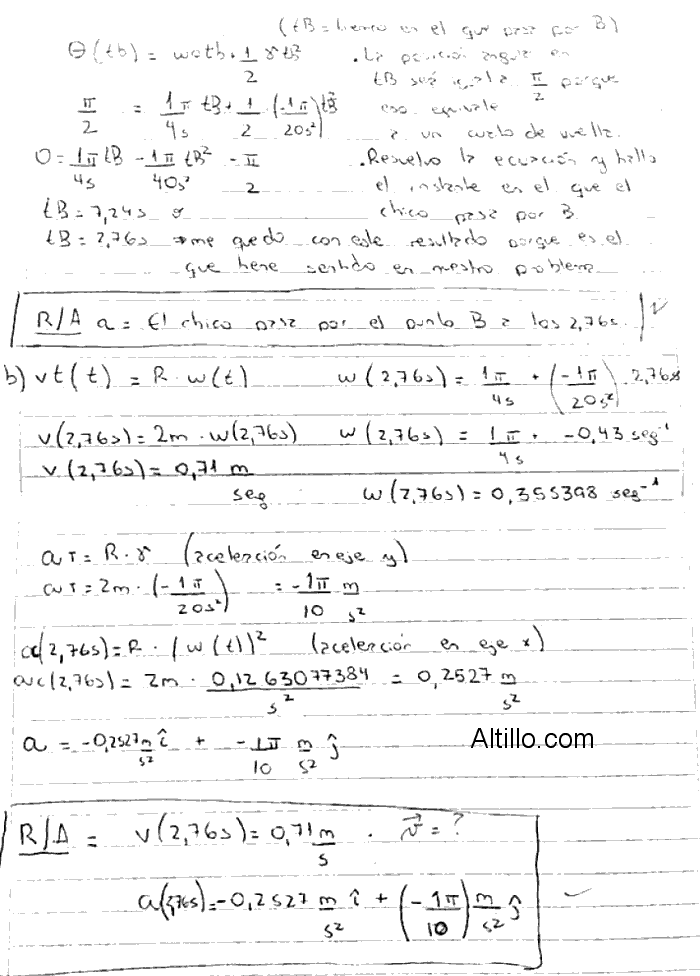 (tB = tiempo en el que pasa por B)
θ(tb) = wotb + 1/2 γtB² . La posición angular en
tB será igual a π/2 porque
π/2 = 1π/4s tB + 1/2 (-1π/20s²) tB² eso equivale
a un cuarto de vuelta.
0 = 1π/4s tB - 1π/40s² tB² - π/2 . Resuelvo la ecuación y hallo
el instante en el que el
tB = 7,24s o chico pasa por B.
tB = 2,76s → me quedo con este resultado porque es el
que tiene sentido en nuestro problema
R/A a = El chico pasa por el punto B a los 2,76s.
b) vt(t) = R · w(t) w(2,76s) = 1π/4s + (-1π/20s²) 2,76s
v(2,76s) = 2m · w(2,76s) w(2,76s) = 1π/4s + -0,43 seg⁻¹
v(2,76s) = 0,71 m/seg w(2,76s) = 0,355398 seg⁻¹
aT = R · γ (aceleración en eje y)
aT = 2m · (-1π/20s²) = -1π/10 m/s²
ac(2,76s) = R · (w(t))² (aceleración en eje x)
ac(2,76s) = 2m · 0,1263077384/s² = 0,2527 m/s²
a = -0,2527 m/s² î + -1π/10 m/s² ĵ
Altillo.com
R/A = v(2,76s) = 0,71 m/s . v⃗ = ?
a(2,76s) = -0,2527 m/s² î + (-1π/10) m/s² ĵ